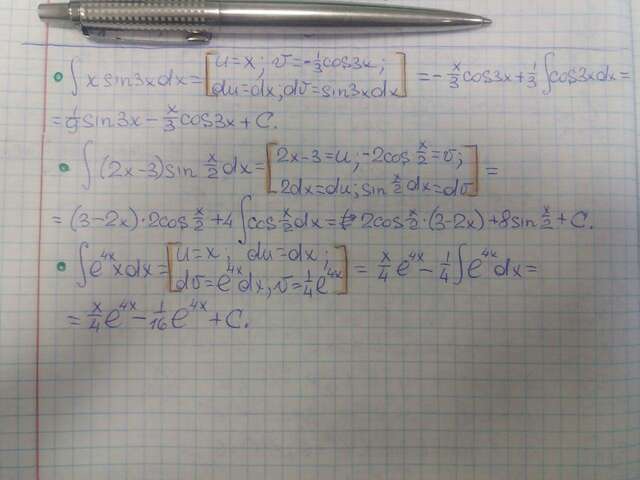 ∫ x sin3x dx = [u = x; v = -1/3 cos3x; du = dx; dv = sin3x dx] = - x/3 cos3x + 1/3 ∫ cos3x dx =
= 1/9 sin3x - x/3 cos3x + C.
∫ (2x-3) sin x/2 dx = [2x-3 = u; -2cos x/2 = v; 2dx = du; sin x/2 dx = dv] =
= (3-2x)·2cos x/2 + 4 ∫ cos x/2 dx = 2cos x/2·(3-2x) + 8sin x/2 + C.
∫ e^{4x} x dx = [u = x; du = dx; dv = e^{4x} dx, v = 1/4 e^{4x}] = x/4 e^{4x} - 1/4 ∫ e^{4x} dx =
= x/4 e^{4x} - 1/16 e^{4x} + C.